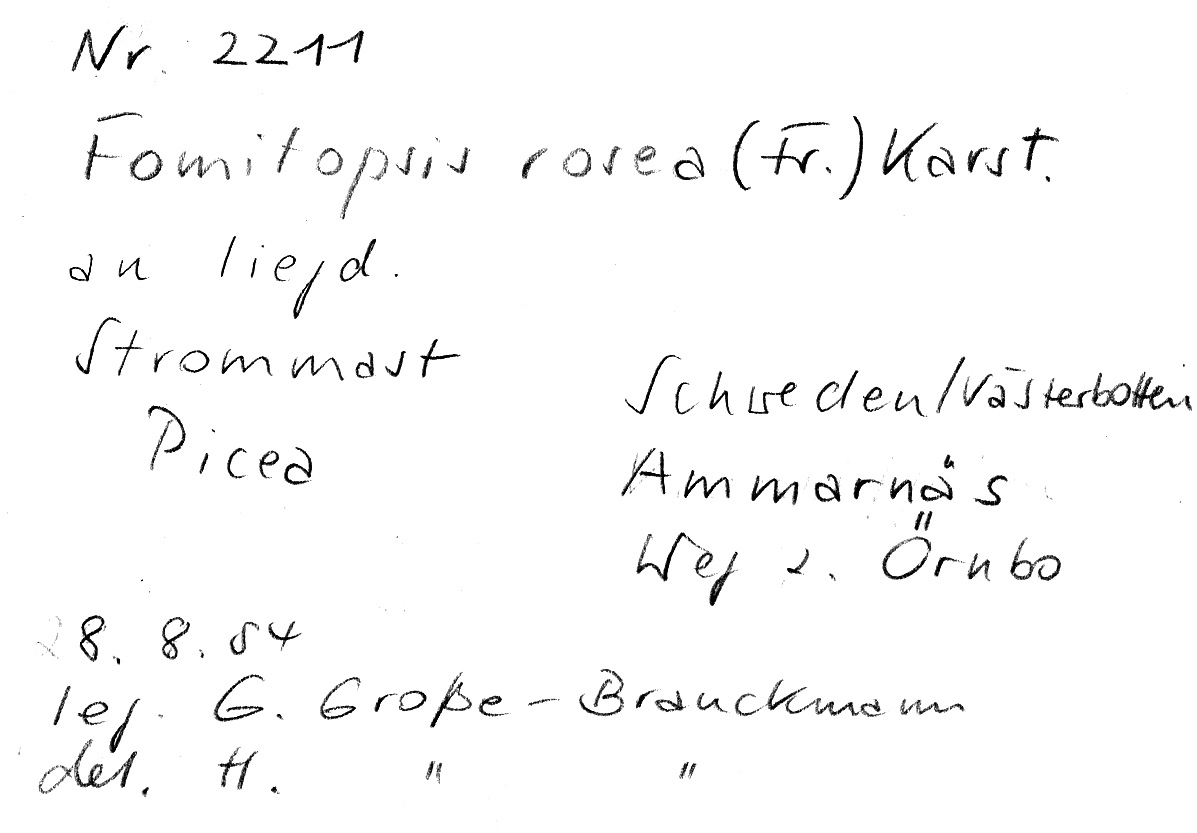 Nr. 2211
Fomitopsis rosea (Fr.) Karst.
an liegd.
Strommast
Picea
Schweden/Västerbotten
Ammarnäs
Weg z. Örnbo
28. 8. 84
leg. G. Große-Brauckmann
det. H. " "